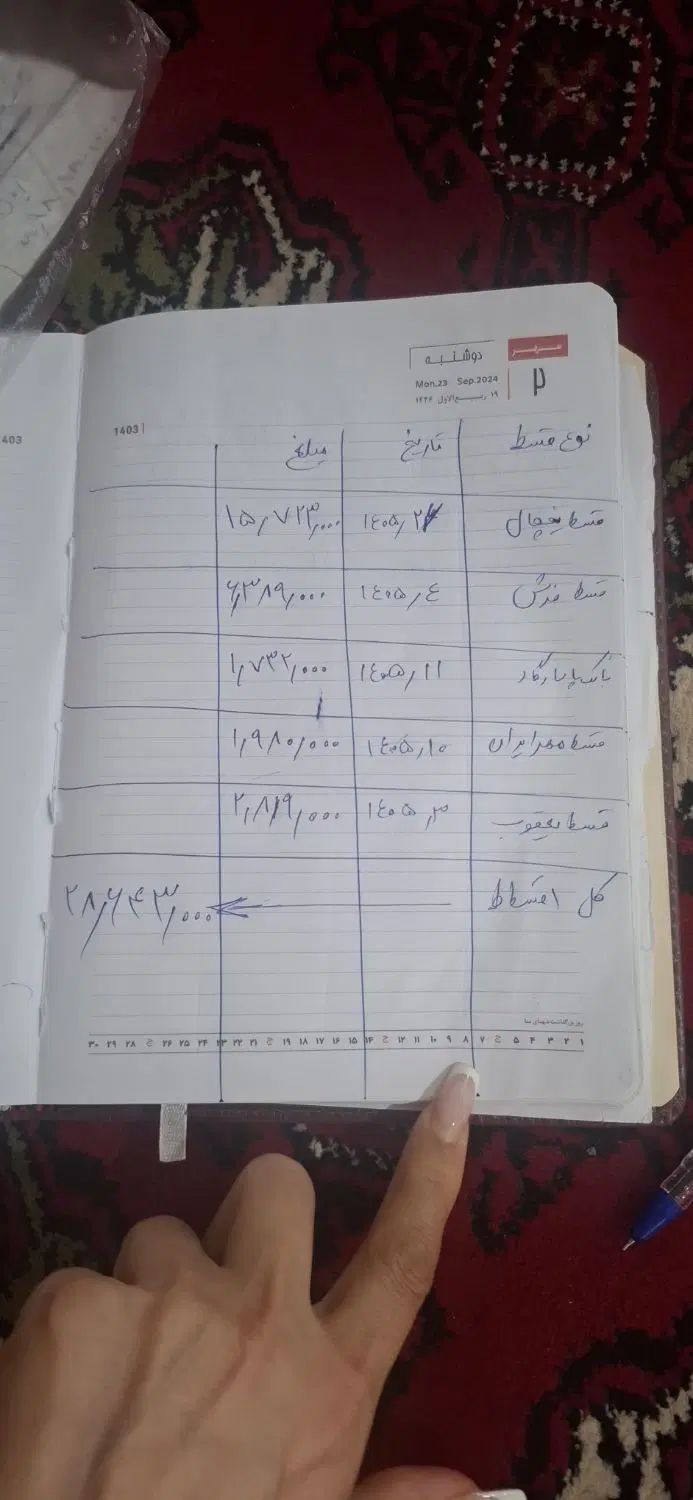 مهر دوشنبه
۲ Mon.23 Sep.2024
۱۹ ربیع‌الاول ۱۴۴۶
1403
403
نوع قسط تاریخ مبلغ
قسط یخچال ۱٤۰۵٫۲ ۱۵٫۷۲۳٫۰۰۰
قسط فرش ۱٤۰۵٫٤ ۶٫۳۸۹٫۰۰۰
بانک پاسارگاد ۱٤۰۵٫۱۱ ۱٫۷۳۲٫۰۰۰
قسط مهر ایران ۱٤۰۵٫۱۰ ۱٫۹۸۰٫۰۰۰
قسط یعقوب ۱٤۰۵٫۳ ۲٫۸۱۹٫۰۰۰
کل اقساط ۲۸٫۶۴۳٫۰۰۰
۱ ۲ ۳ ۴ ۵ ج ۷ ۸ ۹ ۱۰ ۱۱ ۱۲ ج ۱۴ ۱۵ ۱۶ ۱۷ ۱۸ ۱۹ ج ۲۱ ۲۲ ۲۳ ۲۴ ۲۵ ۲۶ ج ۲۸ ۲۹ ۳۰